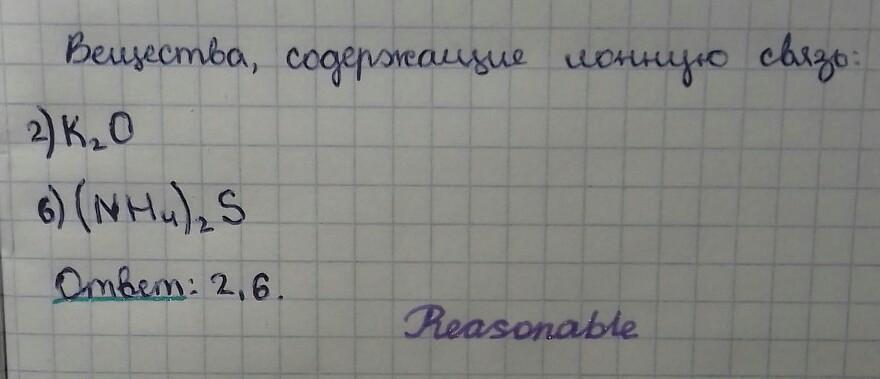 Вещества, содержащие ионную связь:
2) K₂O
6) (NH₄)₂S
Ответ: 2, 6.
Reasonable